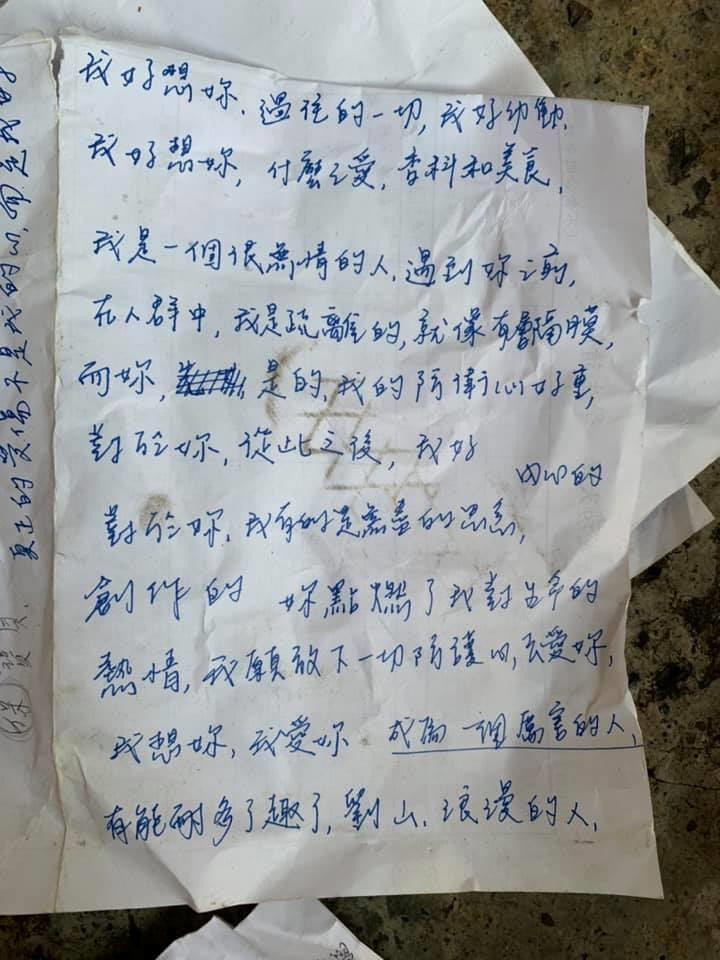 我好想妳、過往的一切,我好幼動、
我好想妳,什麼之愛,香料和美食、
我是一個很無情的人、遇到妳之前,
在人群中,我是疏離的,就像有層隔膜,
而妳, 是的,我的防衛心好重,
對於妳,從此之後,我好
內心的
對於妳、我有的是無盡的思念,
創作的 妳點燃了我對生命的
熱情,我願放下一切防護心,去愛妳,
我想妳,我愛妳 成為一個厲害的人,
有能耐多了趣了,劉山、浪漫的人、
真正的受傷不是我的心,而是我的